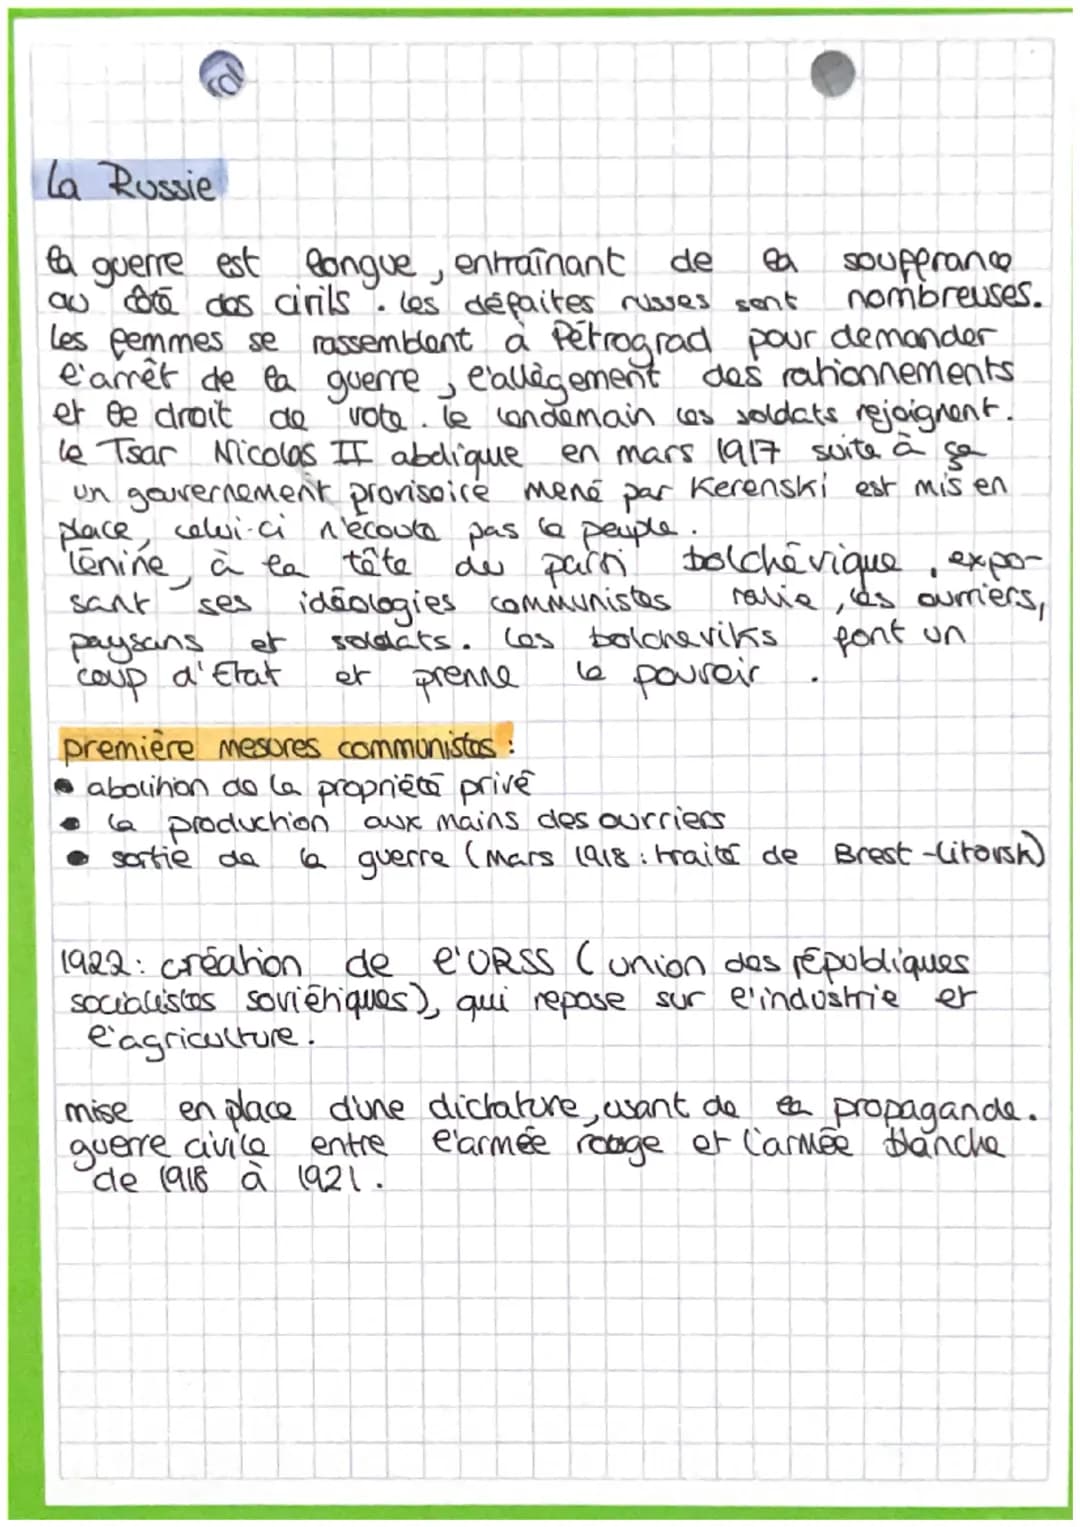 La Russie
la guerre est longue, entraînant de la souffrance
au côté des civils. Les défaites russes sont nombreuses.
Les femmes se rassemblent à Pétrograd pour demander
l'arrêt de la guerre, l'allègement des rationnements
et le droit de vote. Le lendemain les soldats rejoignent.
Le Tsar Nicolas II abdique en mars 1917 suite à ça
un gouvernement provisoire mené par Kerenski est mis en
place, celui-ci n'écoute pas le peuple.
Lénine, à la tête du parti bolchévique, expo-
sant ses idéologies communistes ralie, les ouvriers,
paysans et soldats. Les bolcheviks font un
coup d'Etat et prenne le pouvoir.
première mesures communistes :
• abolition de la propriété privé
• la production aux mains des ouvriers
• sortie de la guerre (Mars 1918 : traité de Brest-Litovsk)
1922 : création de l'URSS (union des républiques
socialistes soviétiques), qui repose sur l'industrie et
l'agriculture.
mise en place d'une dictature, usant de la propagande.
guerre civile entre l'armée rouge et l'armée blanche
de 1918 à 1921.